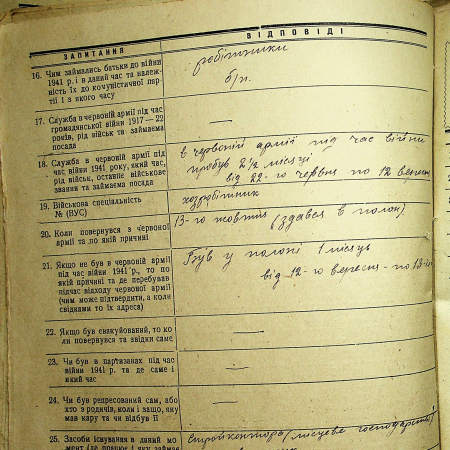 ЗАПИТАННЯ
ВІДПОВІДІ
16. Чим займались батьки до війни
1941 р. і в даний час та належ-
ність їх до комуністичної пар-
тії і з якого часу
робітники
б/п.
17. Служба в червоній армії під час
громадянської війни 1917—22
років, рід військ та займаєма
посада
—
18. Служба в червоній армії під
час війни 1941 року, який час,
рід військ, останнє військове
звання та займаєма посада
в червоній армії під час війни
пробув 2½ місяці
від 22-го червня по 12 вересня
19. Військова спеціальність
№ (ВУС)
20. Коли повернувся з червоної
армії та по якій причині
13-го жовтня (здався в полон)
21. Якщо не був в червоній армії
під час війни 1941 р., то по
якій причині та де перебував
підчас відходу червоної армії
(чим може підтвердити, а коли
свідками то їх адреса)
Був у полоні 1 місяць
від 12-го вересня - по 13-
22. Якщо був евакуйований, то ко-
ли повернувся та звідки саме
—
23. Чи був в партизанах під час
війни 1941 р. та де саме і
який час
—
24. Чи був репресований сам, або
хто з родичів, коли і защо, яку
мав кару та чи відбув її
—
25. Засоби існування в даний мо-
мент (де працює і яку займає